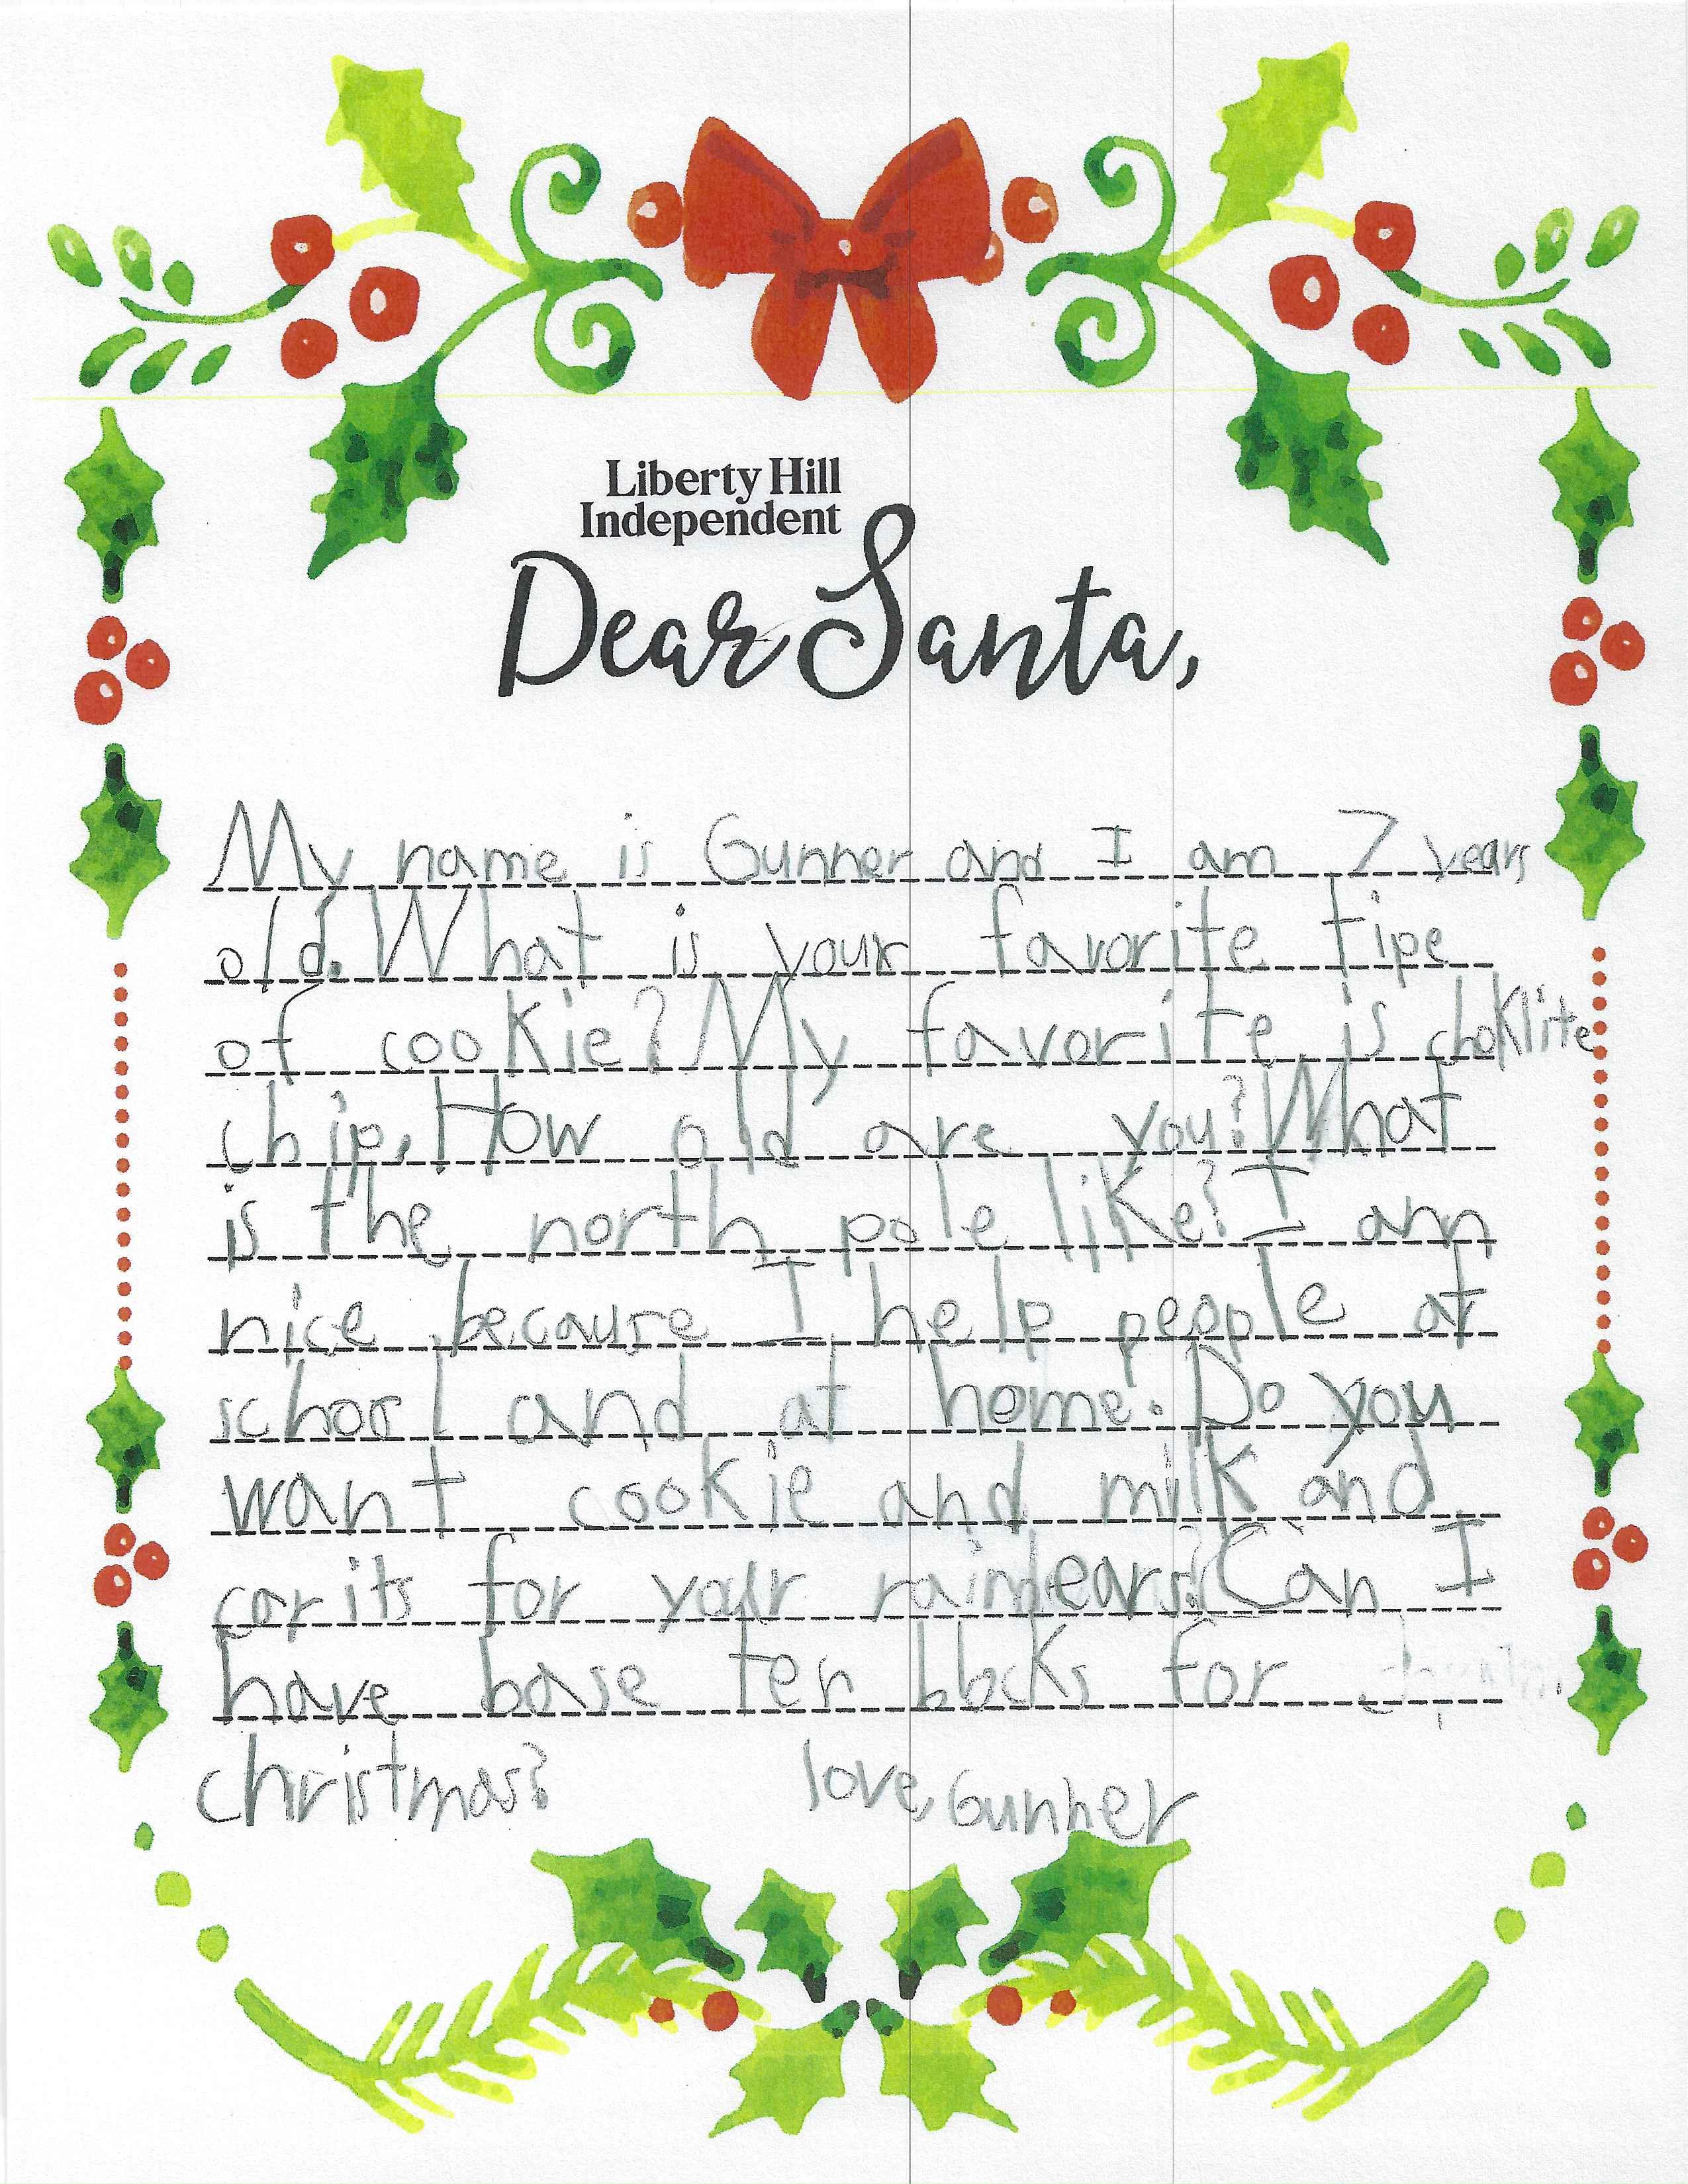 Liberty Hill
Independent
Dear Santa,
My name is Gunner and I am 7 years
old. What is your favorite tipe
of cookie? My favorite is choklite
chip. How old are you? What
is the north pole like? I am
nice because I help people at
school and at home. Do you
want cookie and milk and
carits for your raindears? Can I
have base ten blocks for
christmas? love, Gunner